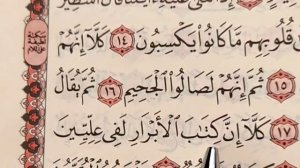 قُلُوبِهِم مَّا كَانُوا۟ يَكْسِبُونَ ١٤ كَلَّآ إِنَّهُمْ
١٥ ثُمَّ إِنَّهُمْ لَصَالُوا۟ ٱلْجَحِيمِ ١٦ ثُمَّ يُقَالُ
١٧ كَلَّآ إِنَّ كِتَٰبَ ٱلْأَبْرَارِ لَفِى عِلِّيِّينَ